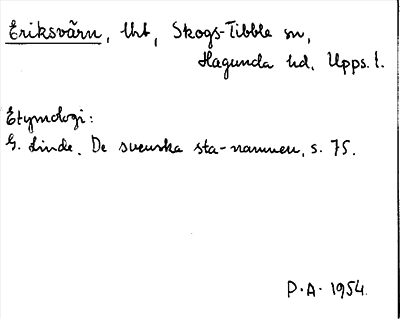 Eriksvärn, tht, Skogs-Tibble sn,
Hagunda hd, Upps. l.
Etymologi:
G. Linde. De svenska sta-namnen, s. 75.
P.A. 1954.